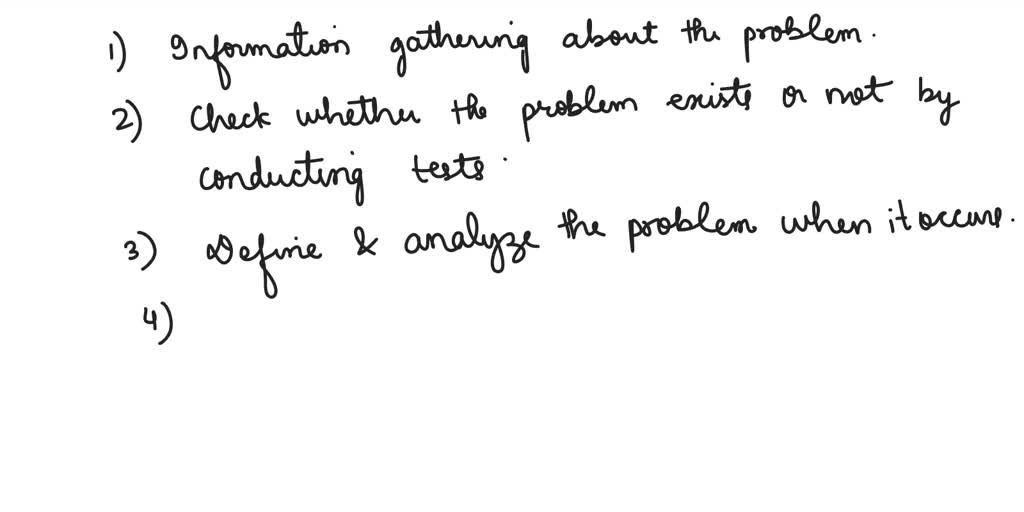 1) Information gathering about the problem.
2) Check whether the problem exists or not by
conducting tests.
3) Define & analyze the problem when it occurs.
4)